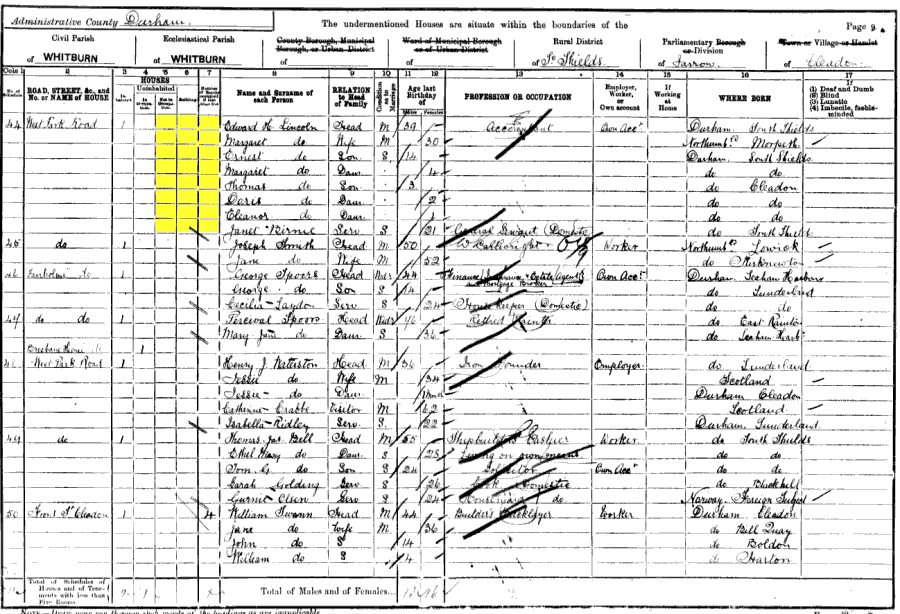 Administrative County Durham.
The undermentioned Houses are situate within the boundaries of the
Page 9
Civil Parish
of WHITBURN
Ecclesiastical Parish
of WHITBURN
County Borough, Municipal
Borough, or Urban District
of
Ward of Municipal Borough
or of Urban District
of
Rural District
of So Shields
Parliamentary Borough
or Division
of Jarrow
Town or Village or Hamlet
of Cleadon
Cols 1 2 3 4 5 6 7 8 9 10 11 12 13 14 15 16 17
No. of Schedule
ROAD, STREET, &c., and
No. or NAME of HOUSE
HOUSES
Inhabited
Uninhabited
Building
Name and Surname of
each Person
RELATION
to Head
of Family
Condition
as to
Marriage
Age last
Birthday
of
Males Females
PROFESSION OR OCCUPATION
Employer,
Worker,
or
Own account
If
Working
at
Home
WHERE BORN
If
(1) Deaf and Dumb
(2) Blind
(3) Lunatic
(4) Imbecile, feeble-
minded
44 West Park Road 1 Edward H. Lincoln Head M 39 Accountant Own Acct Durham South Shields
Margaret do Wife M 30 Northumbd Morpeth
Ernest do Son S 14 Durham South Shields
Margaret do Daur 4 do do
Thomas do Son 3 do Cleadon
Doris do Daur 2 do do
Eleanor do Daur 1 do do
Janet Birnie Serv S 21 General Servant (Domestic do South Shields
45 do 1 Joseph Smith Head M 50 Worker Northumbd Lowick
Jane do Wife M 52 do Kirknewton
46 do 1 George Spoors Head Widr 44 Own Acct Durham Seaham Harbour
George do Son S 14 do Sunderland
Cecilia Laydon Serv S 24 House keeper (Domestic) do do
47 do do 1 Percival Spoors Head Widr 76 Retired do East Rainton
Mary Jane do Daur S 36 do Seaham Harbr
1
48 West Park Road 1 Henry J. Watterston Head M 36 Iron Founder Employer do Sunderland
Jessie do Wife M 34 Scotland
Jessie do Daur Durham Cleadon
Catherine Crabbe Visitor M 62 Scotland
Isabella Ridley Serv S 22 Durham Sunderland
49 do 1 Thomas Jas. Bell Head M 55 Shipbuilders Cashier Worker do South Shields
Ethel Mary do Daur S 28 Living on own means do do
Tom G. do Son S 24 Solicitor Own Acct do do
Sarah Golding Serv S 26 Cook Domestic do Blackhill
Olsen Serv S 24 Housemaid do Norway Foreign Subject
50 Front St Cleadon 1 4 William Swann Head M 44 Builder's Worker Durham Cleadon
Jane do Wife M 36 do Bill Quay
John do S 14 do Boldon
William do S 4 do Harton
Total of Schedules of
Houses and of Tene-
ments with less than
Five Rooms
Total of Males and Females...